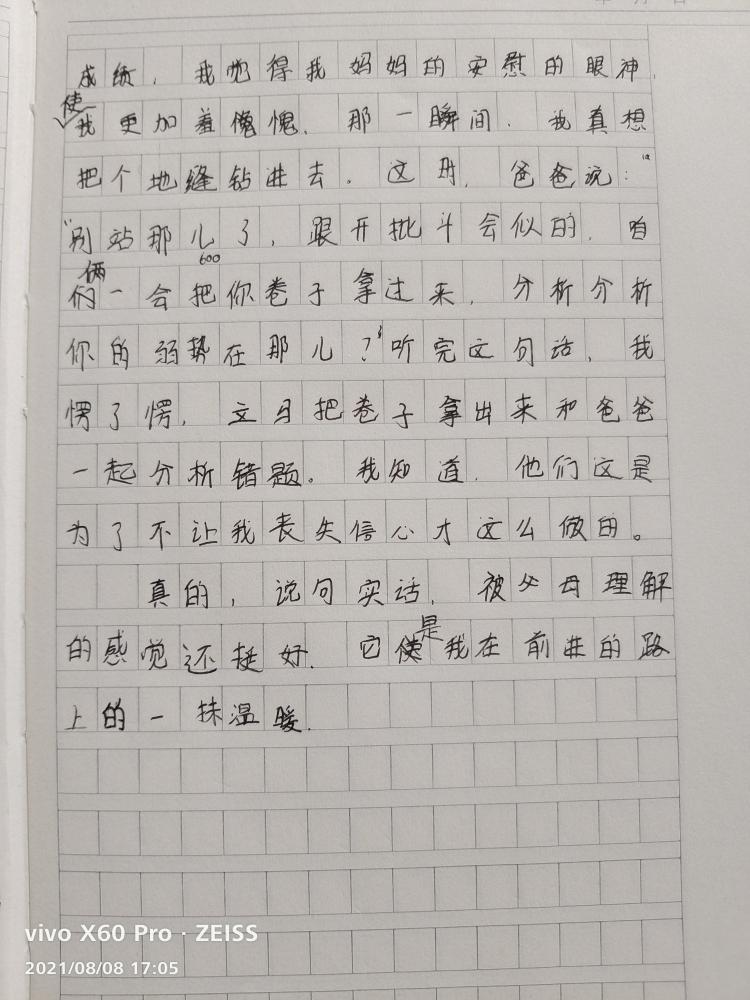 成绩，我觉得我妈妈的安慰的眼神，
使
我更加羞愧愧，那一瞬间，我真想
把个地缝钻进去。这时，爸爸说：“
“别站那儿了，跟开批斗会似的，咱
600
俩
们一会把你卷子拿过来，分析分析
你的弱势在那儿？”听完这句话，我
愣了愣，立马把卷子拿出来和爸爸
一起分析错题。我知道，他们这是
为了不让我丧失信心才这么做的。
真的，说句实话，被父母理解
是
的感觉还挺好，它使我在前进的路
上的一抹温暖.
vivo X60 Pro · ZEISS
2021/08/08 17:05